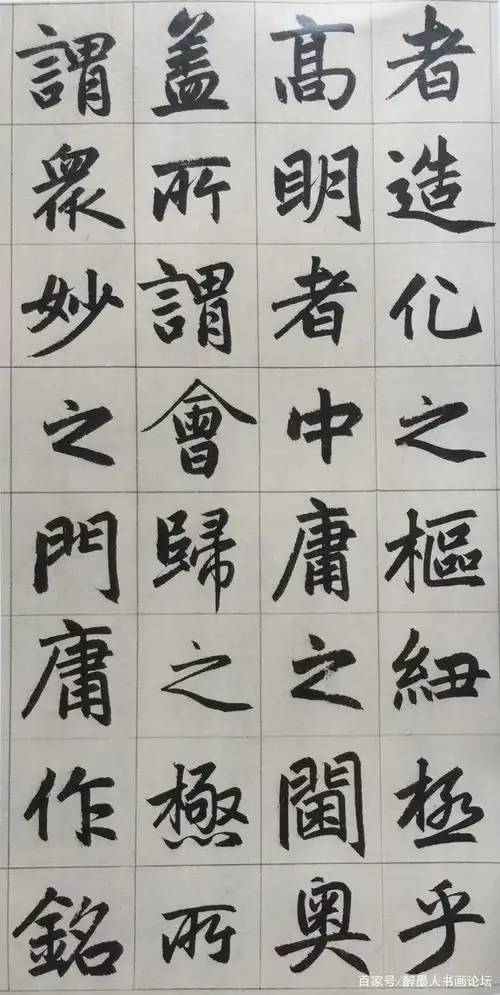 者造化之樞紐極乎
高明者中庸之閫奧
盖所謂會歸之極所
謂衆妙之門庸作銘
百家号/醉墨人书画论坛